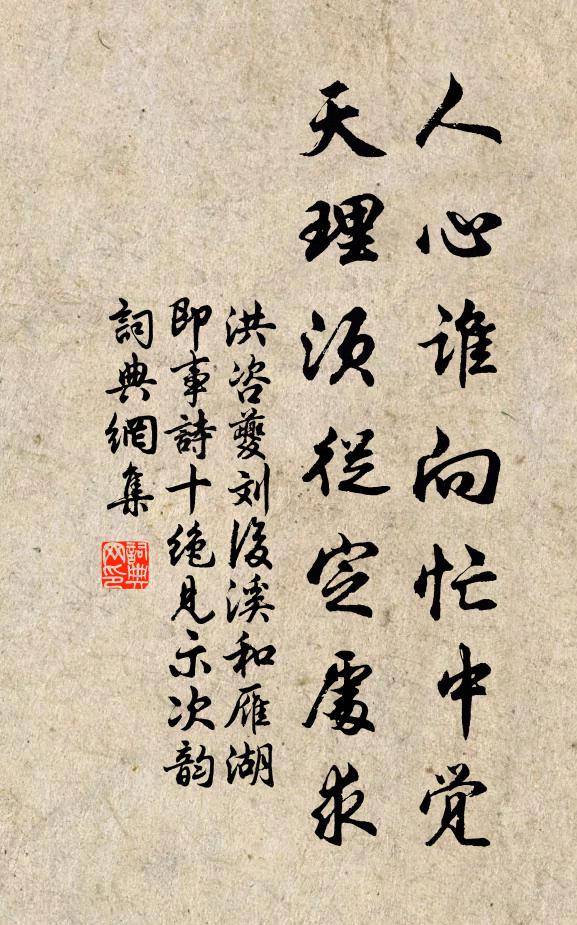 人心谁向忙中觉
天理须從定處求
洪咨夔刘後溪和雁湖
即事詩十绝見示次韵
詞典網集
詞典
网印